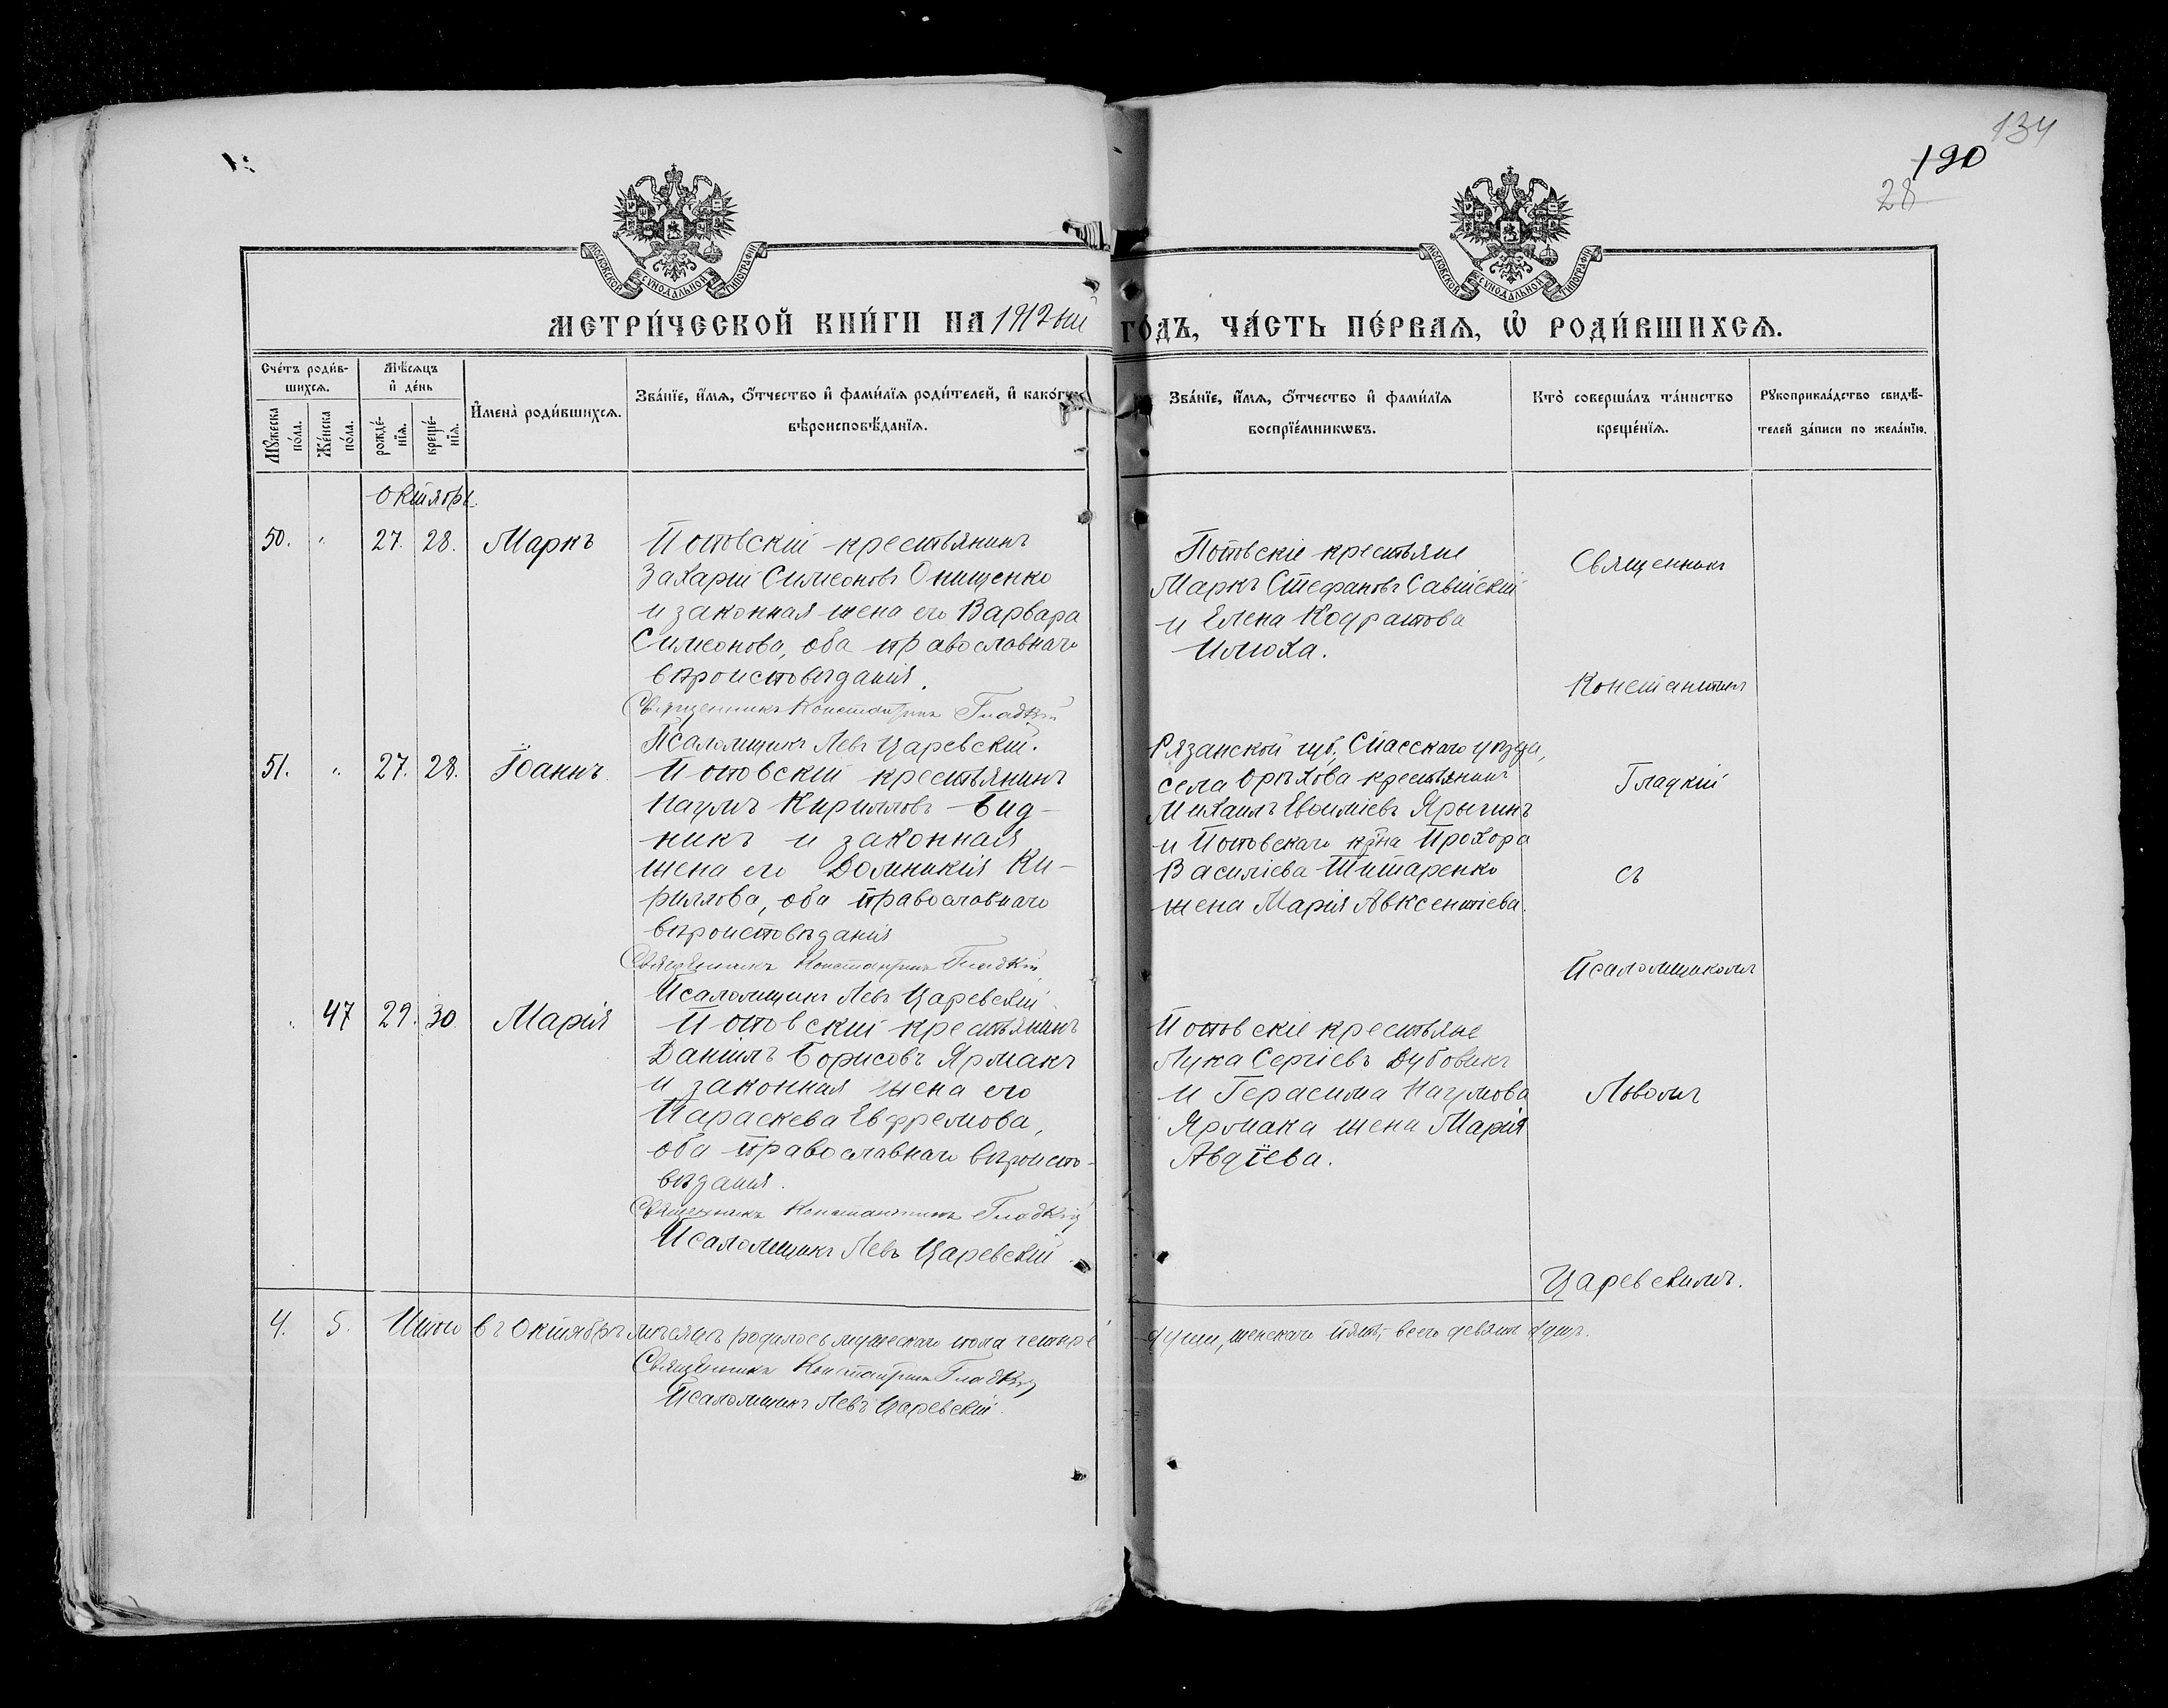 134
120
28
МОСКОВСКОЙ СѴНОДАЛЬНОЙ ТИПОГРАФІИ
МОСКОВСКОЙ СѴНОДАЛЬНОЙ ТИПОГРАФІИ
МЕТРИ́ЧЕСКОЙ КНИ́ГИ НА 1912 ый ГО́ДЪ, ЧА́СТЬ ПЕ́РВАѦ, Ѽ РОДИ́ВШИХСѦ.
Сче́тъ роди́в-
шихсѧ.
Мꙋжеска по́ла.
Же́нска по́ла.
Мѣ́сѧцъ
и҆ де́нь
рожде́-нїѧ.
креще́-нїѧ.
И҆мена̀ роди́вшихсѧ.
Зва́нїе, и҆́мѧ, ѻ҆́тчество и҆ фами́лїѧ роди́телей, и҆ како́гѡ
вѣроисповѣ́данїѧ.
Зва́нїе, и҆́мѧ, ѻ҆́тчество и҆ фами́лїѧ
воспрїе́мникѡвъ.
Кто̀ соверша́лъ та́инство
креще́нїѧ.
Рꙋкоприкла́дство свидѣ́-
телей за́писи по жела́нїю.
Октябрь.
50. " 27. 28. Маркъ
Потовскій крестьянинъ
Захарій Симеоновъ Онищенко
и законная жена его Варвара
Симеонова, оба православнаго
вѣроисповѣданія.
Священникъ Константинъ Гладкій
Псаломщикъ Левъ Царевскій.
Потовскіе крестьяне
Маркъ Стефановъ Савійскій
и Елена Кодратова
Илюха.
51. " 27. 28. Іоаннъ.
Потовскій крестьянинъ
Наумъ Кирилловъ Бид-
никъ и законная
жена его Домникія Ки-
риллова, оба православнаго
вѣроисповѣданія
Священникъ Константинъ Гладкій
Псаломщикъ Левъ Царевскій
Рязанской губ., Спасскаго уѣзда,
села Орѣхова крестьянинъ
Михаилъ Евѳиміевъ Ярыгинъ
и Потовскаго кр-на Прохора
Василіева Титаренко
жена Марія Авксентіева.
" 47 29. 30. Марія
Потовскій крестьянинъ
Даніилъ Борисовъ Ярмакъ
и законная жена его
Параскева Евфремова,
оба православнаго вѣроиспо-
вѣданія.
Священникъ Константинъ Гладкій
Псаломщикъ Левъ Царевскій.
Потовскіе крестьяне
Лука Сергіевъ Дубовикъ
и Герасима Наумова
Ярмака жена Марія
Авдіева.
Священникъ
Константинъ
Гладкій
съ
Псаломщикомъ
Львомъ
Царевскимъ.
4. 5. Итого въ Октябрѣ мѣсяцѣ родилось мужескаго пола четыре души, женскаго пять, - всего девять душъ.
Священникъ Константинъ Гладкій
Псаломщикъ Левъ Царевскій.